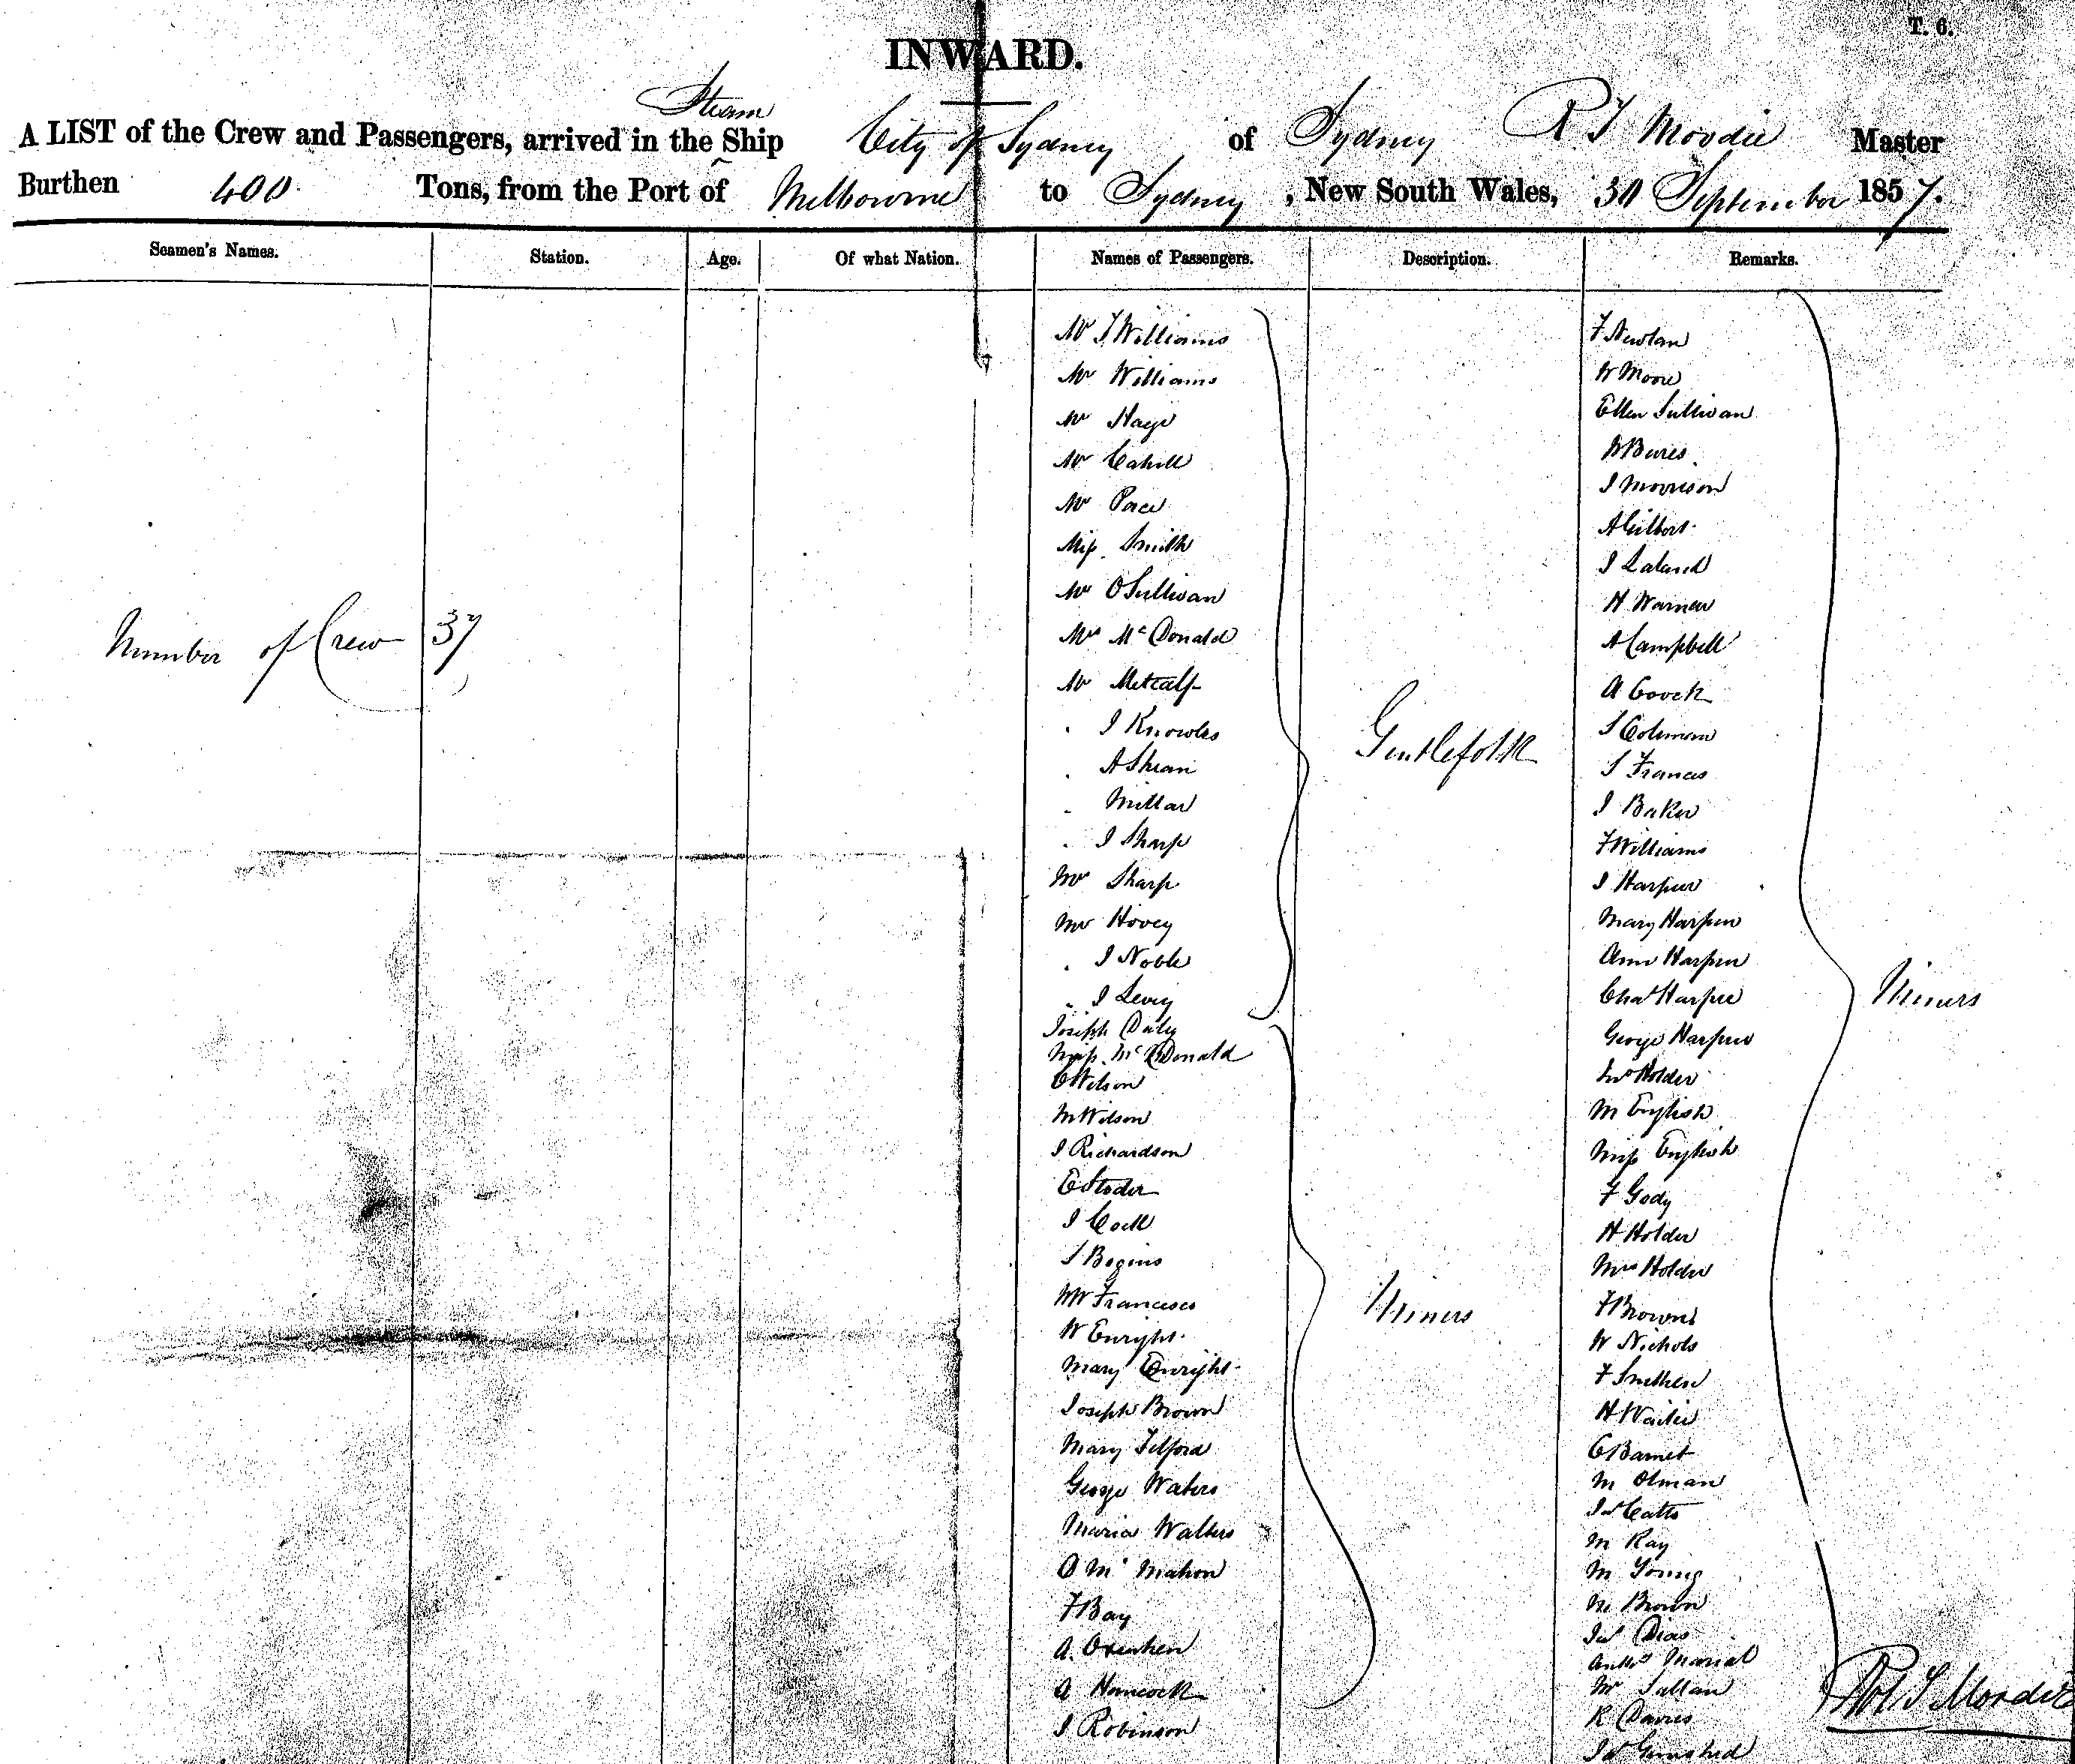 T. 6.
INWARD.
Steam
A LIST of the Crew and Passengers, arrived in the Ship City of Sydney of Sydney R T Moodie Master
Burthen 400 Tons, from the Port of Melbourne to Sydney, New South Wales, 30 September 1857.
Seamen's Names. Station. Age. Of what Nation. Names of Passengers. Description. Remarks.
Number of Crew 37
Mr J Williams
Mr Williams
Mr Haye
Mr Cahill
Mr Pace
Miss Smith
Mr O Sullivan
Mrs McDonald
Mr Metcalf
" J Knowles
" A
" Millar
" J Sharp
Mr Sharp
Mr Hovey
" J Noble
" J Levey
Joseph Daly
Miss McDonald
C Wilson
M Wilson
J Richardson
E Stoder
J Cock
S Begins
Wm Francisco
W Enright
Mary Enright
Joseph Brown
Mary Telford
George Waters
Maria Walters
O McMahon
F Bay
A.
A Hancock
J Robinson
Gentlefolk
Miners
F Newlan
W Moore
Ellen Sullivan
J Morrison
A Gilbert
J Laland
H Warner
A Campbell
A Coock
S Coleman
S Frances
J Baker
F Williams
J Harpur
Mary Harpur
Ann Harpur
Chas Harpur
George Harpur
Jno Holder
M English
Miss English
F Gody
H Holder
Mrs Holder
F Brown
W Nichols
F Smithen
H
C Barnet
M Olman
Jas Catto
M Ray
M Young
M Brown
Jas Dias
Mr Sullan
R Davies
Miners
Rot T Moodie